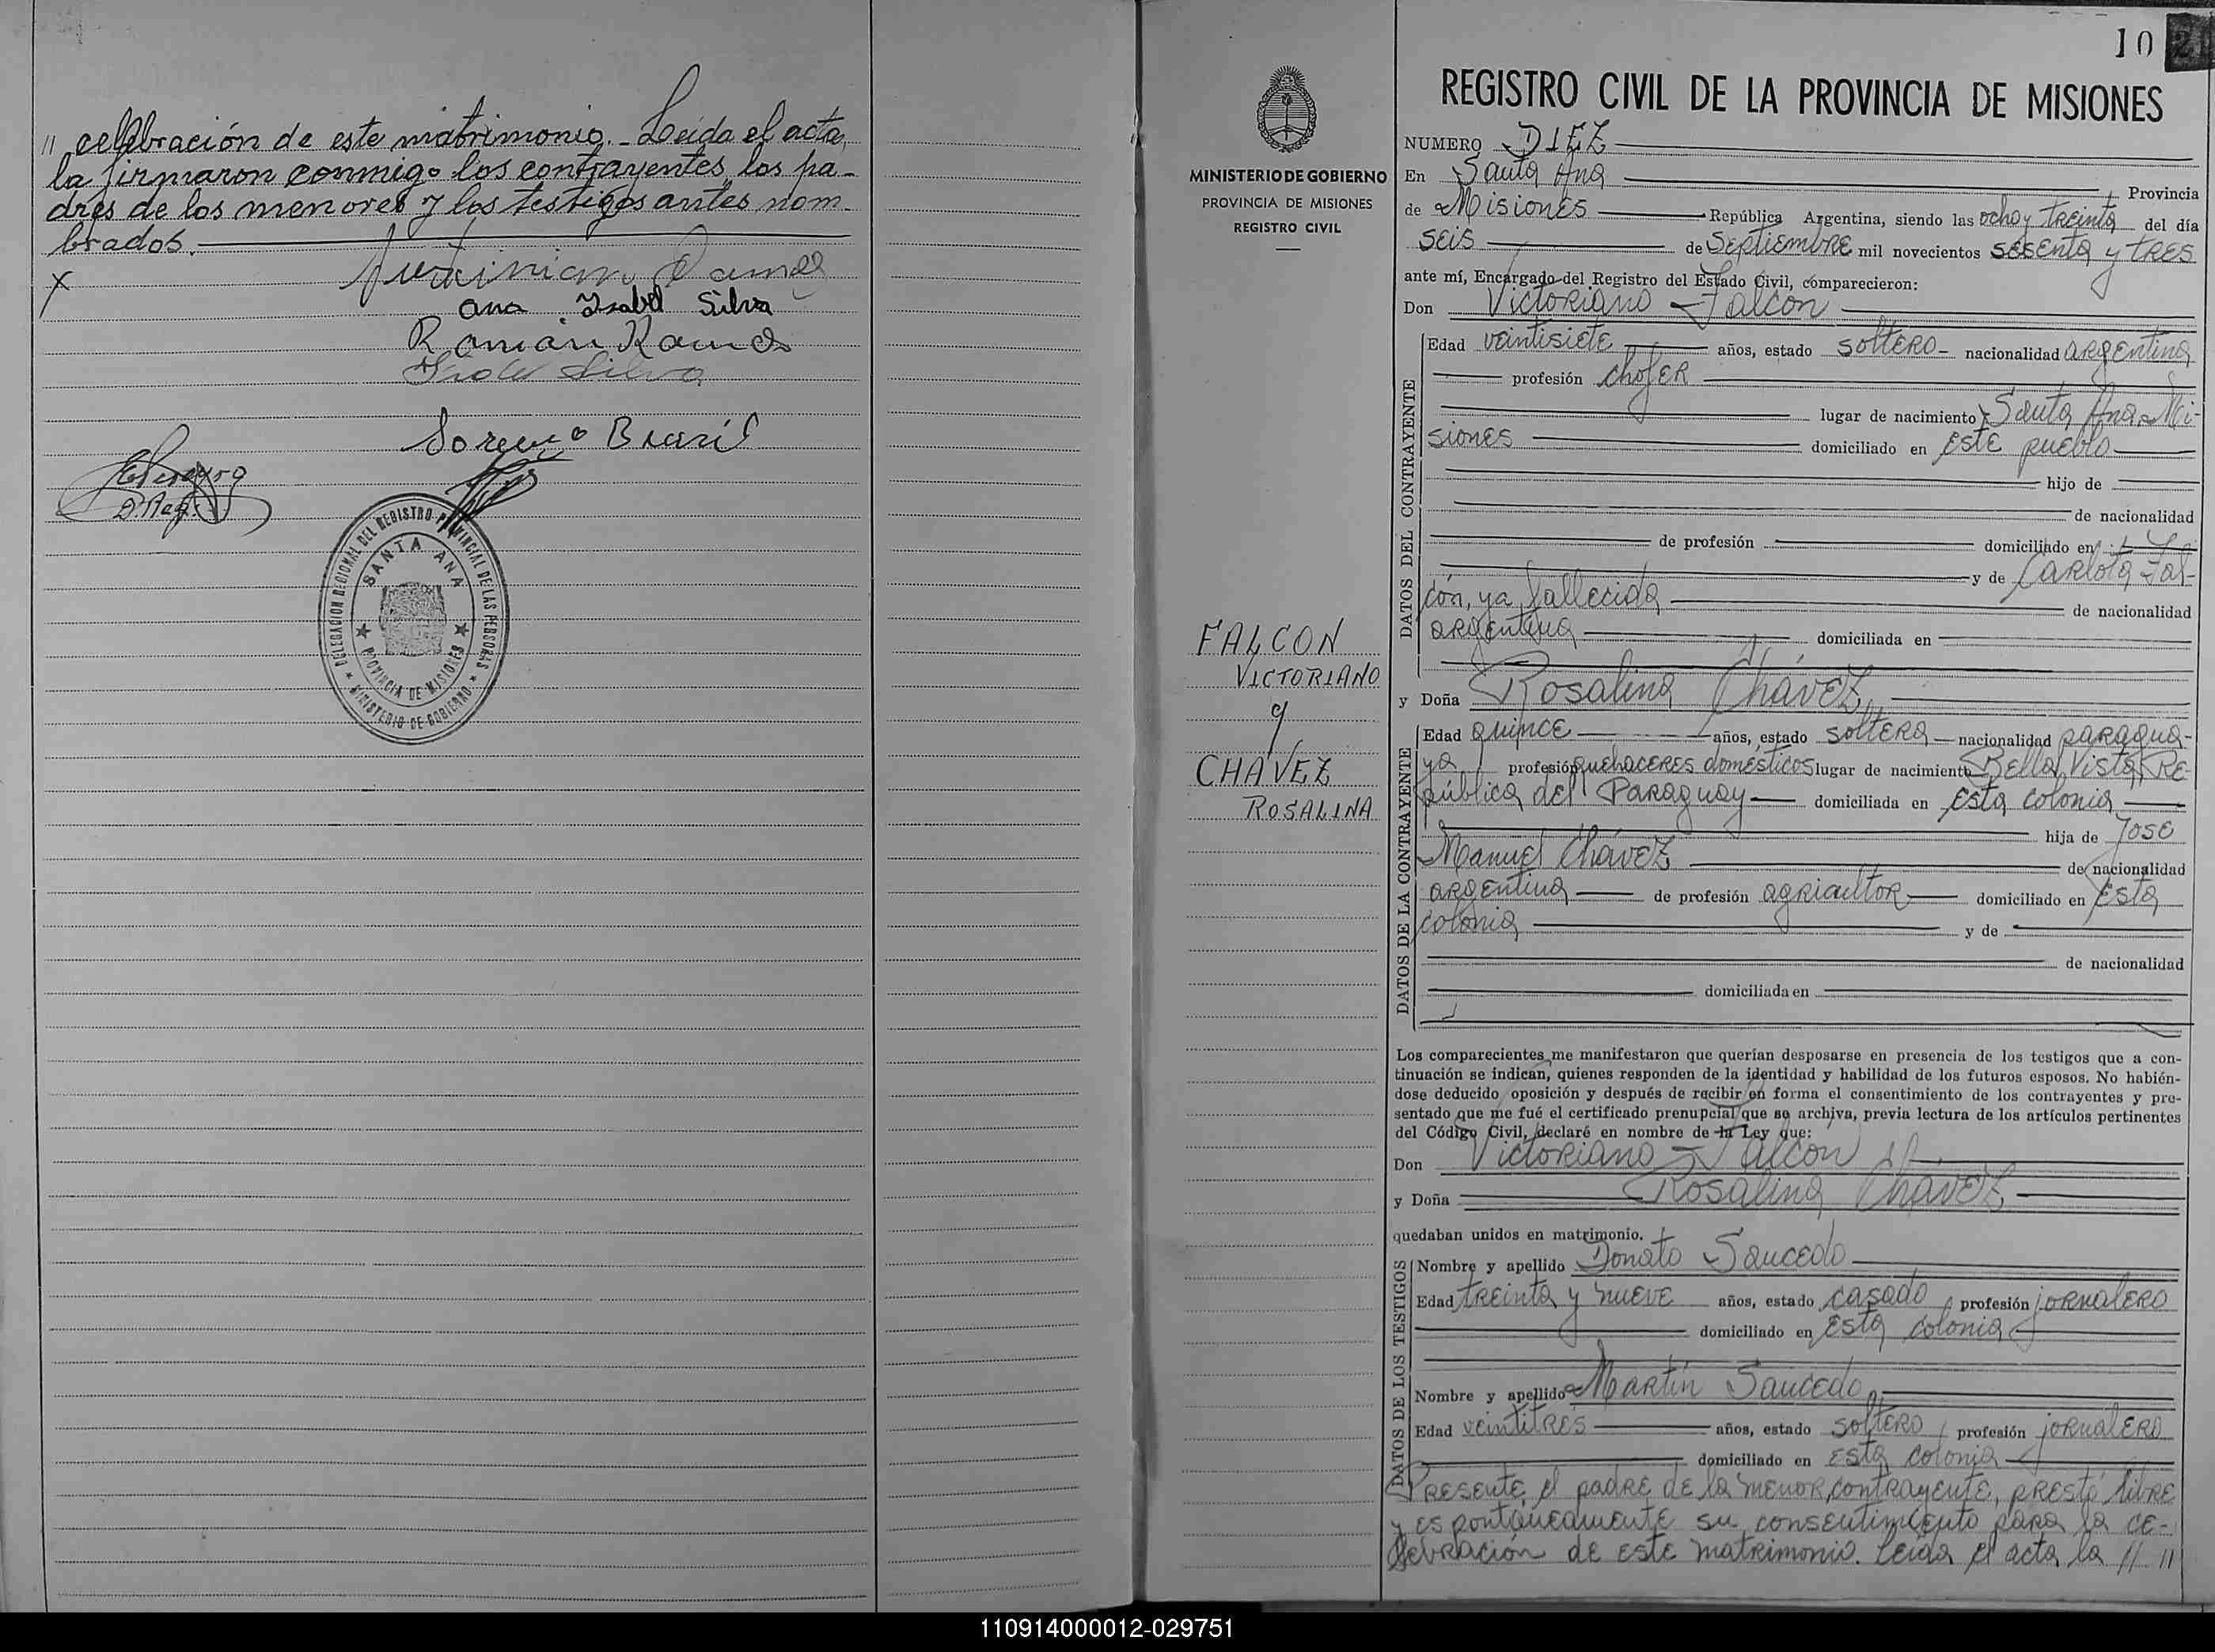 // celebración de este matrimonio.- Leída el acta,
la firmaron conmigo los contrayentes, los pa-
dres de los menores y los testigos antes nom-
brados.
x
Ramos
Ana Isabel Silva
Román Ramos
Silva
D. Reg.
DELEGACION REGIONAL DEL REGISTRO PROVINCIAL DE LAS PERSONAS
SANTA ANA
PROVINCIA DE MISIONES
MINISTERIO DE GOBIERNO
10
MINISTERIO DE GOBIERNO
PROVINCIA DE MISIONES
REGISTRO CIVIL
FALCON
VICTORIANO
y
CHAVEZ
ROSALINA
REGISTRO CIVIL DE LA PROVINCIA DE MISIONES
NUMERO DIEZ
En Santa Ana Provincia
de Misiones República Argentina, siendo las ocho y treinta del día
seis de Septiembre mil novecientos sesenta y tres
ante mí, Encargado del Registro del Estado Civil, comparecieron:
Don Victoriano Falcon
DATOS DEL CONTRAYENTE
Edad veintisiete años, estado soltero- nacionalidad argentina
profesión chofer
lugar de nacimiento Santa Ana-Mi-
siones domiciliado en este pueblo
hijo de
de nacionalidad
de profesión domiciliado en
y de Carlota Fal-
cón, ya fallecida de nacionalidad
argentina domiciliada en
y Doña Rosalina Chávez
DATOS DE LA CONTRAYENTE
Edad quince años, estado soltera nacionalidad paragua-
ya profesión quehaceres domésticos lugar de nacimiento Bella Vista, Re-
pública del Paraguay domiciliada en esta colonia
hija de José
Manuel Chávez de nacionalidad
argentina de profesión agricultor domiciliado en esta
colonia y de
de nacionalidad
domiciliada en
Los comparecientes me manifestaron que querían desposarse en presencia de los testigos que a con-
tinuación se indican, quienes responden de la identidad y habilidad de los futuros esposos. No habién-
dose deducido oposición y después de recibir en forma el consentimiento de los contrayentes y pre-
sentado que me fué el certificado prenupcial que se archiva, previa lectura de los artículos pertinentes
del Código Civil, declaré en nombre de la Ley que:
Don Victoriano Falcon
y Doña Rosalina Chávez
quedaban unidos en matrimonio.
DATOS DE LOS TESTIGOS
Nombre y apellido Donato Saucedo
Edad treinta y nueve años, estado casado, profesión jornalero
domiciliado en esta colonia
Nombre y apellido Martín Saucedo
Edad veintitrés años, estado soltero, profesión jornalero
domiciliado en esta colonia
Presente el padre de la menor contrayente, prestó libre
y espontáneamente su consentimiento para la ce-
lebración de este matrimonio. Leída el acta la // //
110914000012-029751